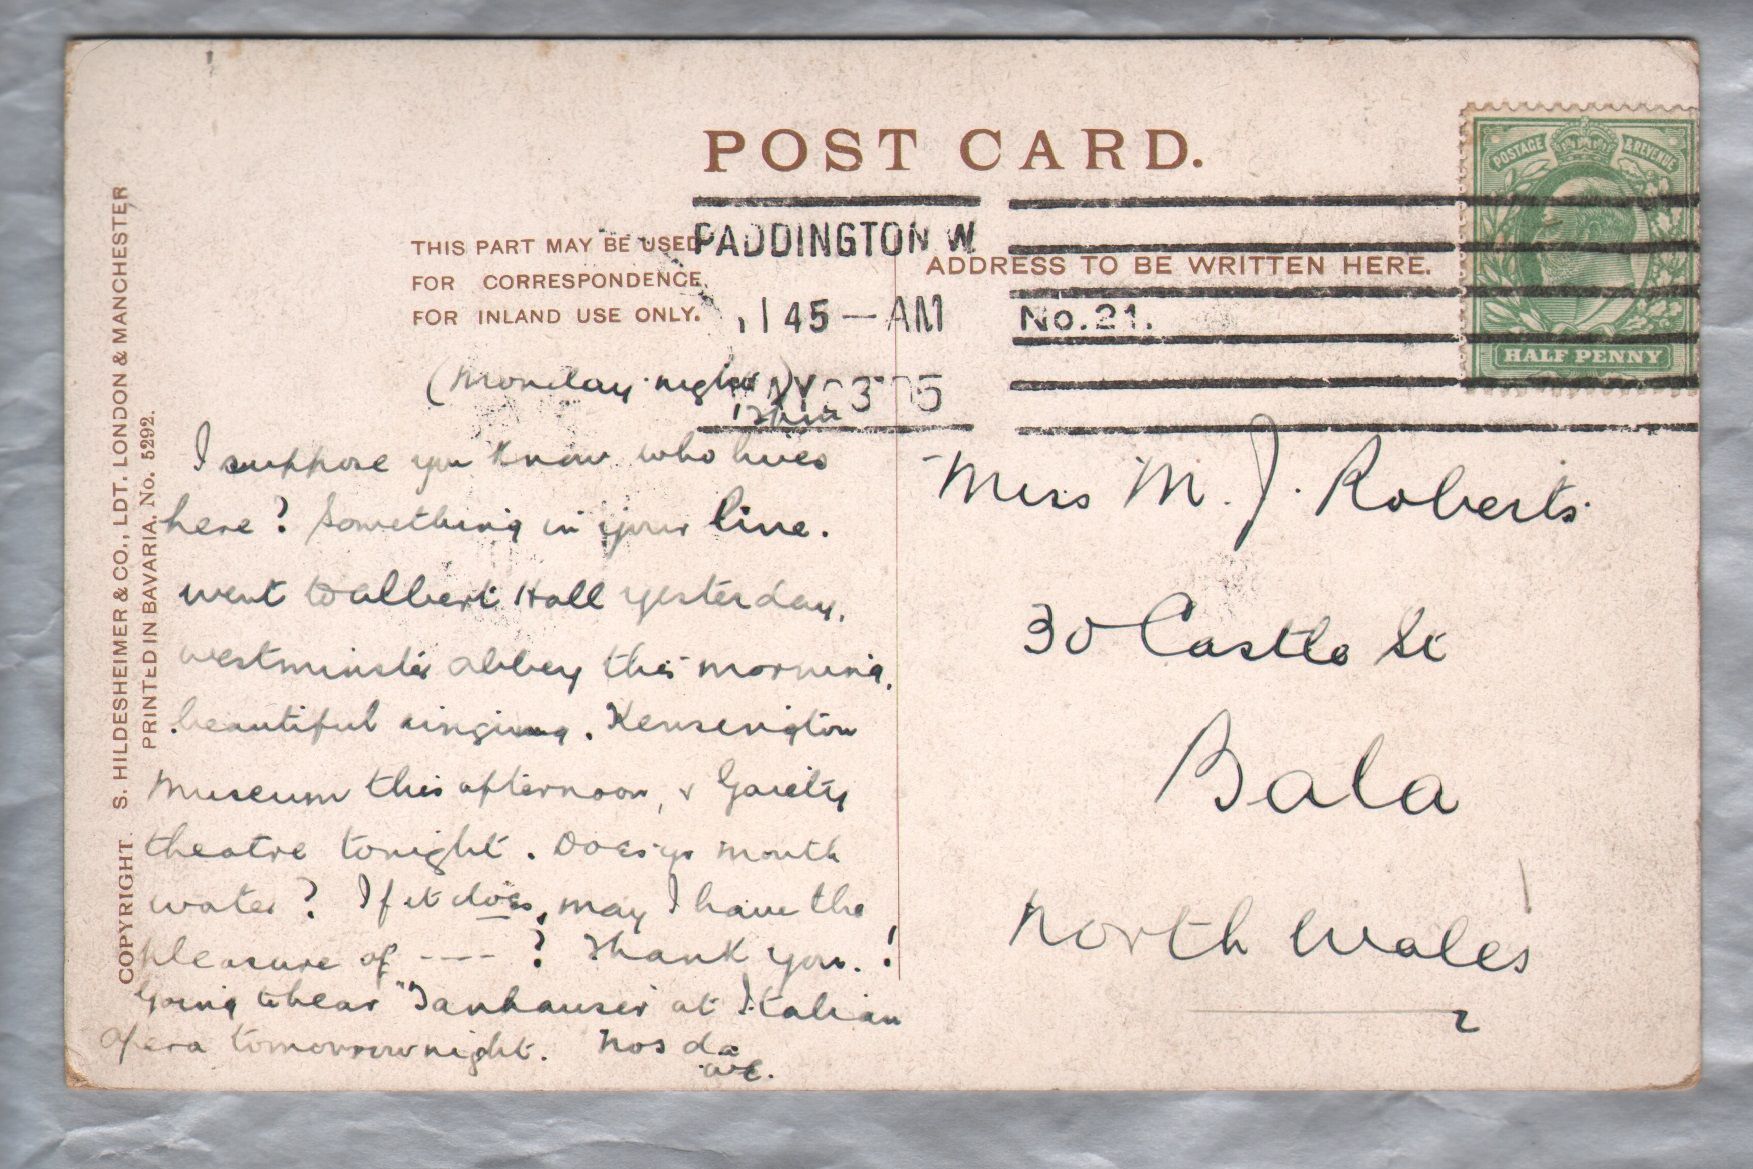 POST CARD.
THIS PART MAY BE USED
FOR CORRESPONDENCE
FOR INLAND USE ONLY.
ADDRESS TO BE WRITTEN HERE.
PADDINGTON W
1145-AM
No. 21.
NY 23 05
POSTAGE & REVENUE
HALF PENNY
COPYRIGHT. S. HILDESHEIMER & CO., LDT. LONDON & MANCHESTER
PRINTED IN BAVARIA. No. 5292.
(Monday night)
I suppose you know who lives
here? Something in your line.
went to albert Hall yesterday,
westminster abbey this morning,
beautiful singing. Kensington
museum this afternoon, & Gaiety
theatre tonight. Does yr mouth
water? If it does, may I have the
pleasure of ----? Thank you.!
Going to hear "Tanhauser at Italian
Opera tomorrow night. Nos da
Miss M. J. Roberts
30 Castle St
Bala
North Wales